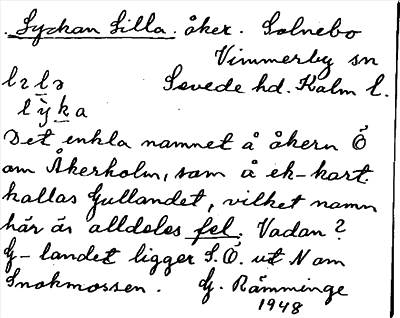 Lyckan Lilla. åker. Solnebo
Vimmerby sn
Sevede hd. Kalm l.
lyka
Det enkla namnet å åkern Ö
om Åkerholm, som å ek-kart.
kallas Gullandet, vilket namn
här är alldeles fel. Vadan?
G-landet ligger S.Ö. ut N om
Snokmossen. G. Rämminge
1948